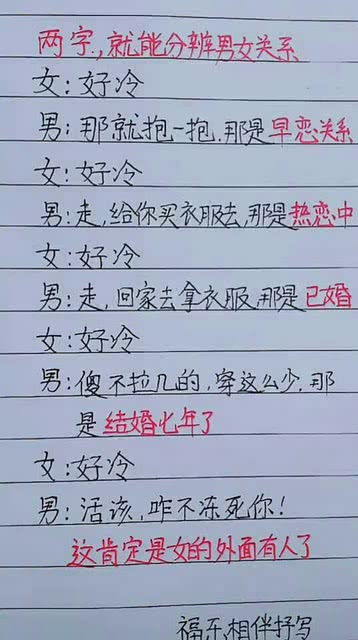 两字,就能分辨男女关系
女:好冷
男:那就抱一抱.那是早恋关系
女:好冷
男:走,给你买衣服去,那是热恋中
女:好冷
男:走,回家去拿衣服,那是已婚
女:好冷
男:傻不拉几的,穿这么少.那
是结婚七年了
女:好冷
男:活该,咋不冻死你!
这肯定是女的外面有人了
福乐相伴抒写